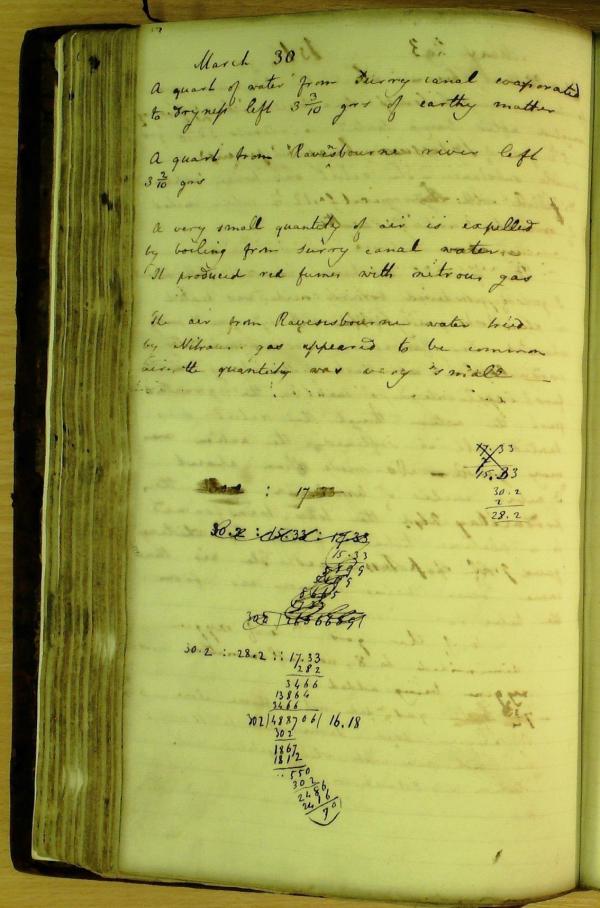 March 30
A quart of water from Surry canal evaporated
to dryness left 3 3/10 grs of earthy matter
A quart from Ravesbourne river left
3 2/10 grs
A very small quantity of air is expelled
by boiling from Surry canal water
It produced red fumes with nitrous gas
The air from Ravesbourne water tried
by Nitrous gas appeared to be common
air the quantity was very small
17.33
2
15.33
30.2
2
28.2
: 17.33
30.2 : 15.33 : 17.33
15.33
30.2 : 28.2 :: 17.33
282
3466
13864
3466
302) 488706 ( 16.18
302
1867
1812
550
302
2486
2416
70